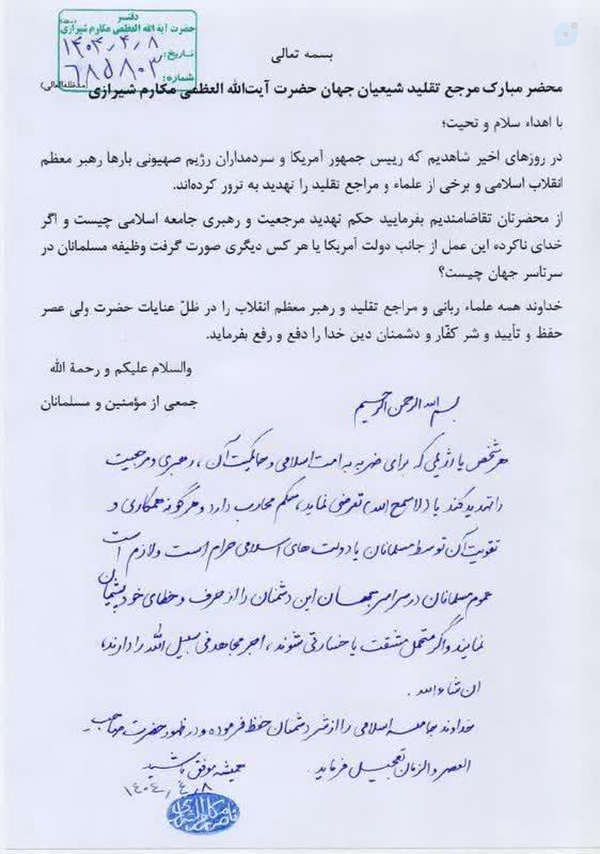 دفتر
حضرت آیة الله العظمی مکارم شیرازی (مدظله)
تاریخ: ۱۴۰۴٫۴٫۸
شماره: ۶۸۵۸۰۳
بسمه تعالی
محضر مبارک مرجع تقلید شیعیان جهان حضرت آیت‌الله العظمی مکارم شیرازی (مدظله‌العالی)
با اهداء سلام و تحیت؛
در روزهای اخیر شاهدیم که رییس جمهور آمریکا و سردمداران رژیم صهیونی بارها رهبر معظم
انقلاب اسلامی و برخی از علماء و مراجع تقلید را تهدید به ترور کرده‌اند.
از محضرتان تقاضامندیم بفرمایید حکم تهدید مرجعیت و رهبری جامعه اسلامی چیست و اگر
خدای ناکرده این عمل از جانب دولت آمریکا یا هر کس دیگری صورت گرفت وظیفه مسلمانان در
سرتاسر جهان چیست؟
خداوند همه علماء ربانی و مراجع تقلید و رهبر معظم انقلاب را در ظلّ عنایات حضرت ولی عصر
حفظ و تأیید و شر کفّار و دشمنان دین خدا را دفع و رفع بفرماید.
والسلام علیکم و رحمة الله
جمعی از مؤمنین و مسلمانان
بسم الله الرحمن الرحیم
هر شخص یا رژیمی که برای ضربه به امت اسلامی و حاکمیت آن، رهبری و مرجعیت
را تهدید کند یا (لا سمح الله) تعرضی نماید، حکم محارب دارد و هر گونه همکاری و
تقویت آن توسط مسلمانان یا دولت های اسلامی حرام است و لازم است
عموم مسلمانان در سراسر جهان این دشمنان را از حرف و خطای خود پشیمان
نمایند و اگر متحمل مشقت یا خسارتی شوند، اجر مجاهد فی سبیل الله را دارند،
ان شاء الله.
خداوند جامعه اسلامی را از شر دشمنان حفظ فرموده و در ظهور حضرت صاحب
العصر و الزمان تعجیل فرماید.
همیشه موفق باشید
۱۴۰۴٫۴٫۸